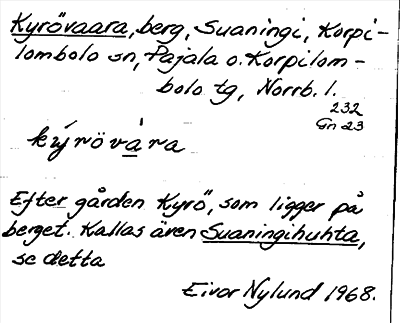 Kyrövaara, berg, Suaningi, Korpi-
lombolo sn, Pajala o. Korpilom-
bolo tg, Norrb. l.
232
Gn 23
kýrövàra
Efter gården Kyrö, som ligger på
berget. Kallas även Suaningihuhta,
se detta
Eivor Nylund 1968.